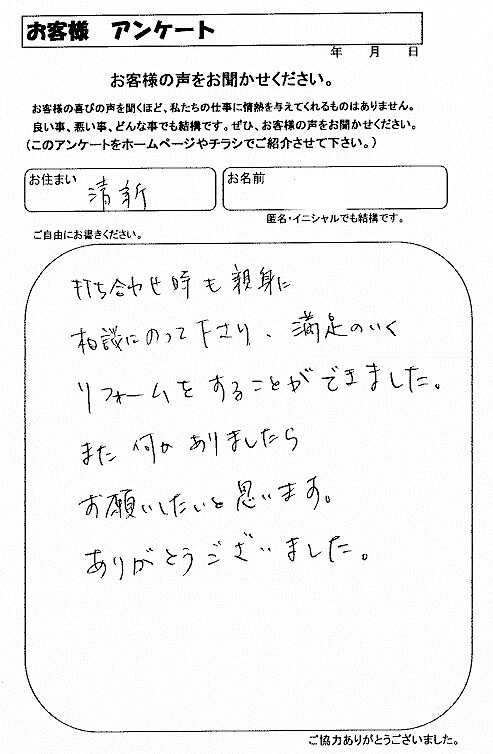 お客様　アンケート
年　月　日
お客様の声をお聞かせください。
お客様の喜びの声を聞くほど、私たちの仕事に情熱を与えてくれるものはありません。
良い事、悪い事、どんな事でも結構です。ぜひ、お客様の声をお聞かせください。
(このアンケートをホームページやチラシでご紹介させて下さい。)
お住まい　清新
お名前
匿名・イニシャルでも結構です。
ご自由にお書きください。
打ち合わせ時も親身に
相談にのって下さり、満足のいく
リフォームをすることができました。
また何かありましたら
お願いしたいと思います。
ありがとうございました。
ご協力ありがとうございました。